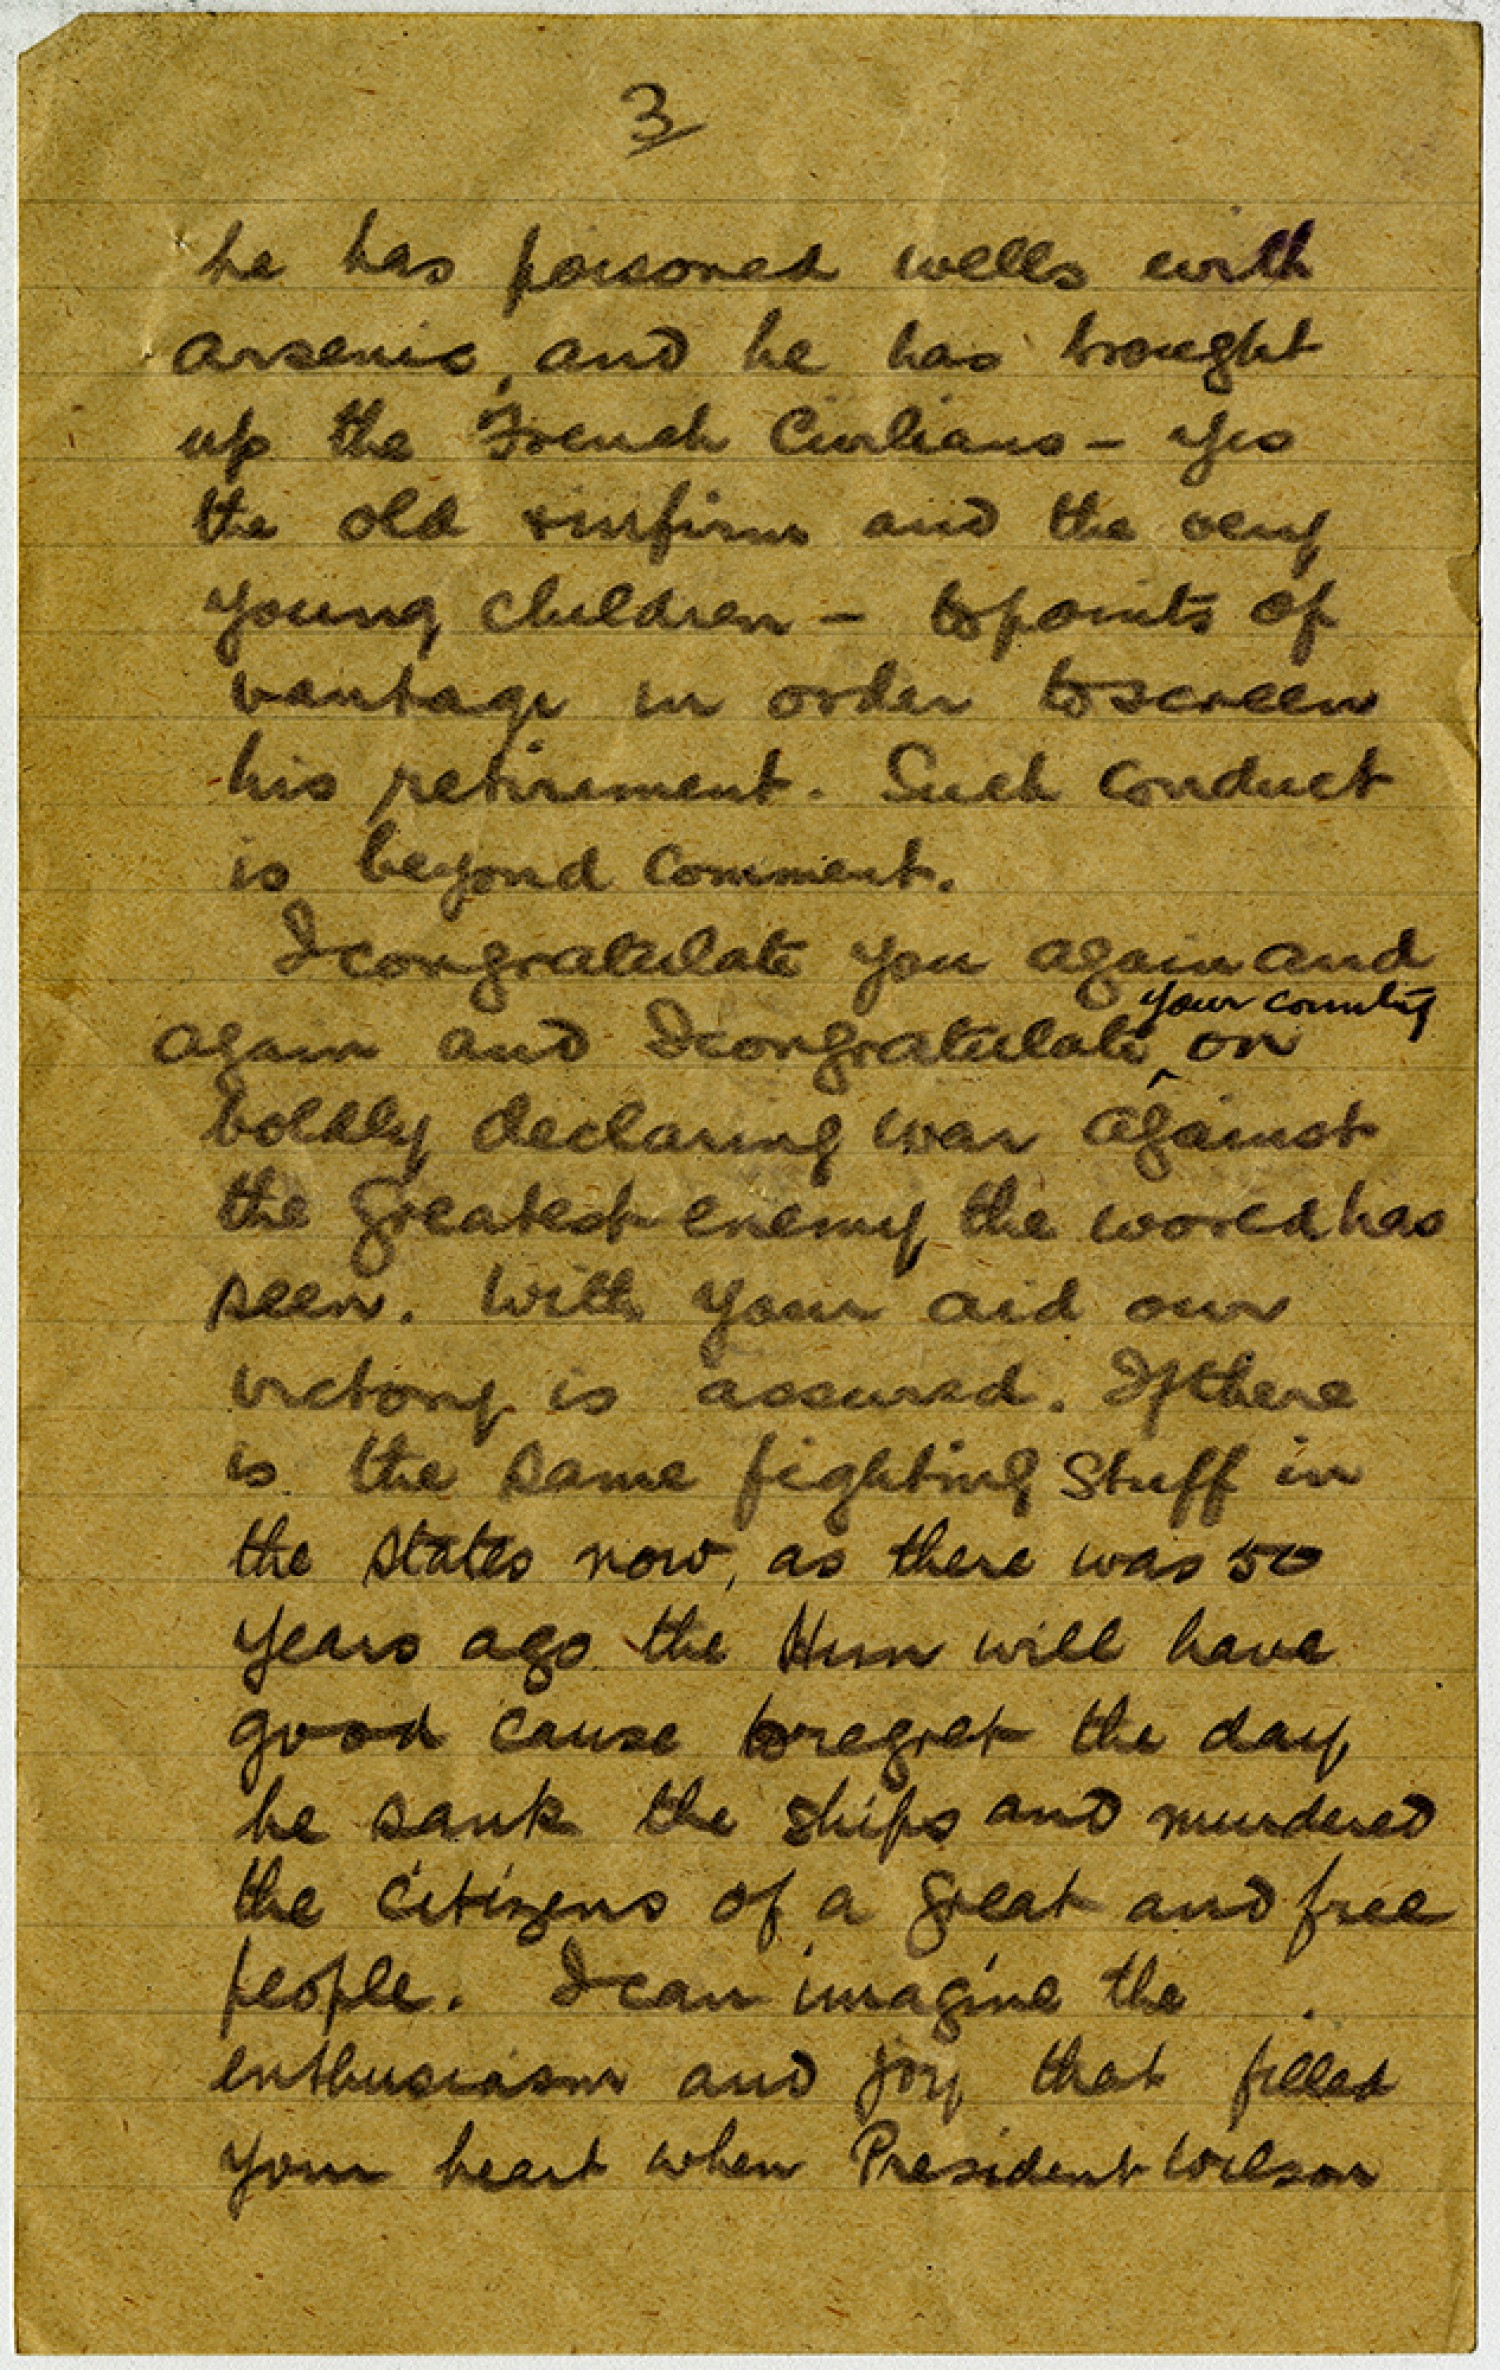 3
he has poisoned wells with
arsenic, and he has brought
up the French Civilians - yes
the old & infirm and the very
young children - to points of
vantage in order to screen
his retirement. Such conduct
is beyond comment.
I congratulate you again and
again and I congratulate ^ your country on
boldly declaring war against
the greatest enemy the world has
seen. With your aid our
victory is assured. If there
is the same fighting stuff in
the States now, as there was 50
years ago the Hun will have
good cause to regret the day
he sank the ships and murdered
the citizens of a great and free
people. I can imagine the
enthusiasm and joy that filled
your heart when President Wilson